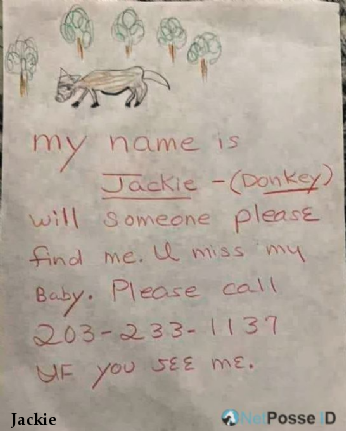 my name is
Jackie - (Donkey)
will someone please
find me. U miss my
Baby. Please call
203-233-1137
UF you see me.
Jackie
NetPosse ID